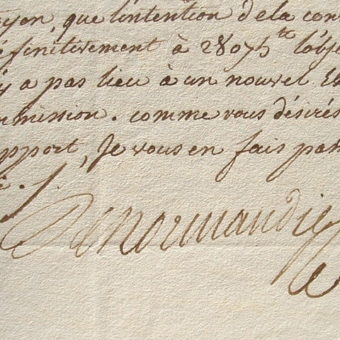 yen, que l'intention dela con
finitivement à 28075tt l'obje
y a pas lieu à un nouvel Ex
mmission. comme vous désirés
pport, Je vous en fais pas
é.
Denormandie